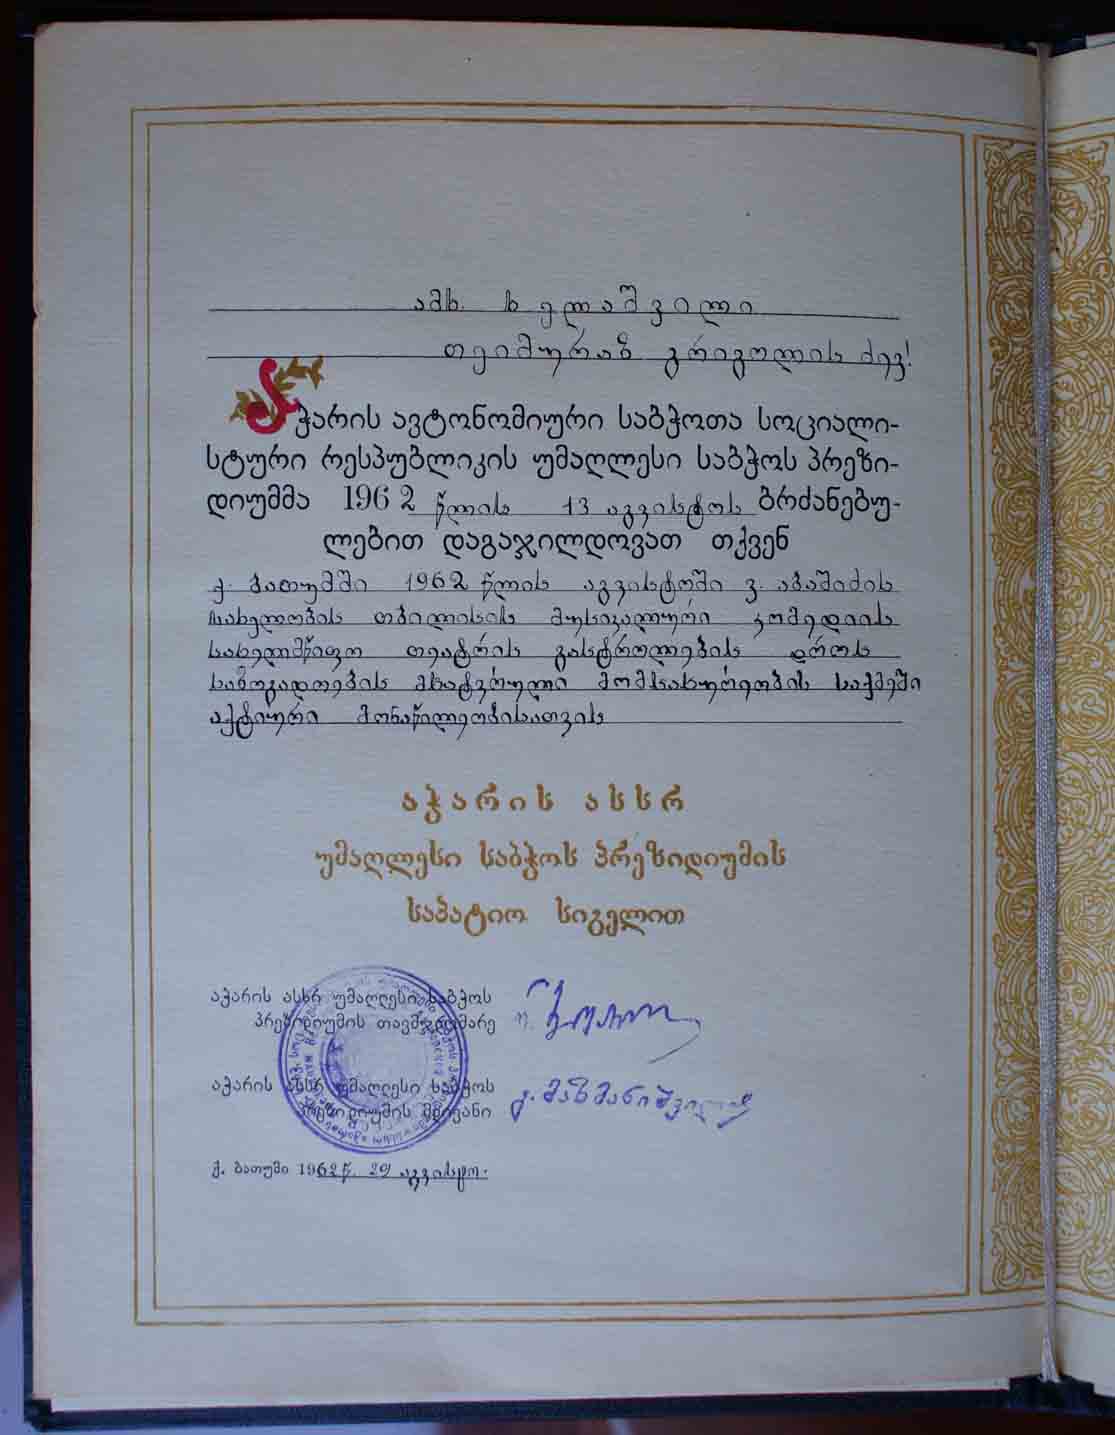 ამხ. ხელაშვილი
თეიმურაზ გრიგოლის ძევ!
აჭარის ავტონომიური საბჭოთა სოციალი-
სტური რესპუბლიკის უმაღლესი საბჭოს პრეზი-
დიუმმა 1962 წლის 13 აგვისტოს ბრძანებუ-
ლებით დაგაჯილდოვათ თქვენ
ქ. ბათუმში 1962 წლის აგვისტოში ვ. აბაშიძის
სახელობის თბილისის მუსიკალური კომედიის
სახელმწიფო თეატრის გასტროლების დროს
საზოგადოების მხატვრული მომსახურეობის საქმეში
აქტიური მონაწილეობისათვის
აჭარის ასსრ
უმაღლესი საბჭოს პრეზიდიუმის
საპატიო სიგელით
აჭარის ასსრ უმაღლესი საბჭოს
პრეზიდიუმის თავმჯდომარე
აჭარის ასსრ უმაღლესი საბჭოს
პრეზიდიუმის მდივანი
ქ. ბათუმი 1962 წ. 29 აგვისტო.